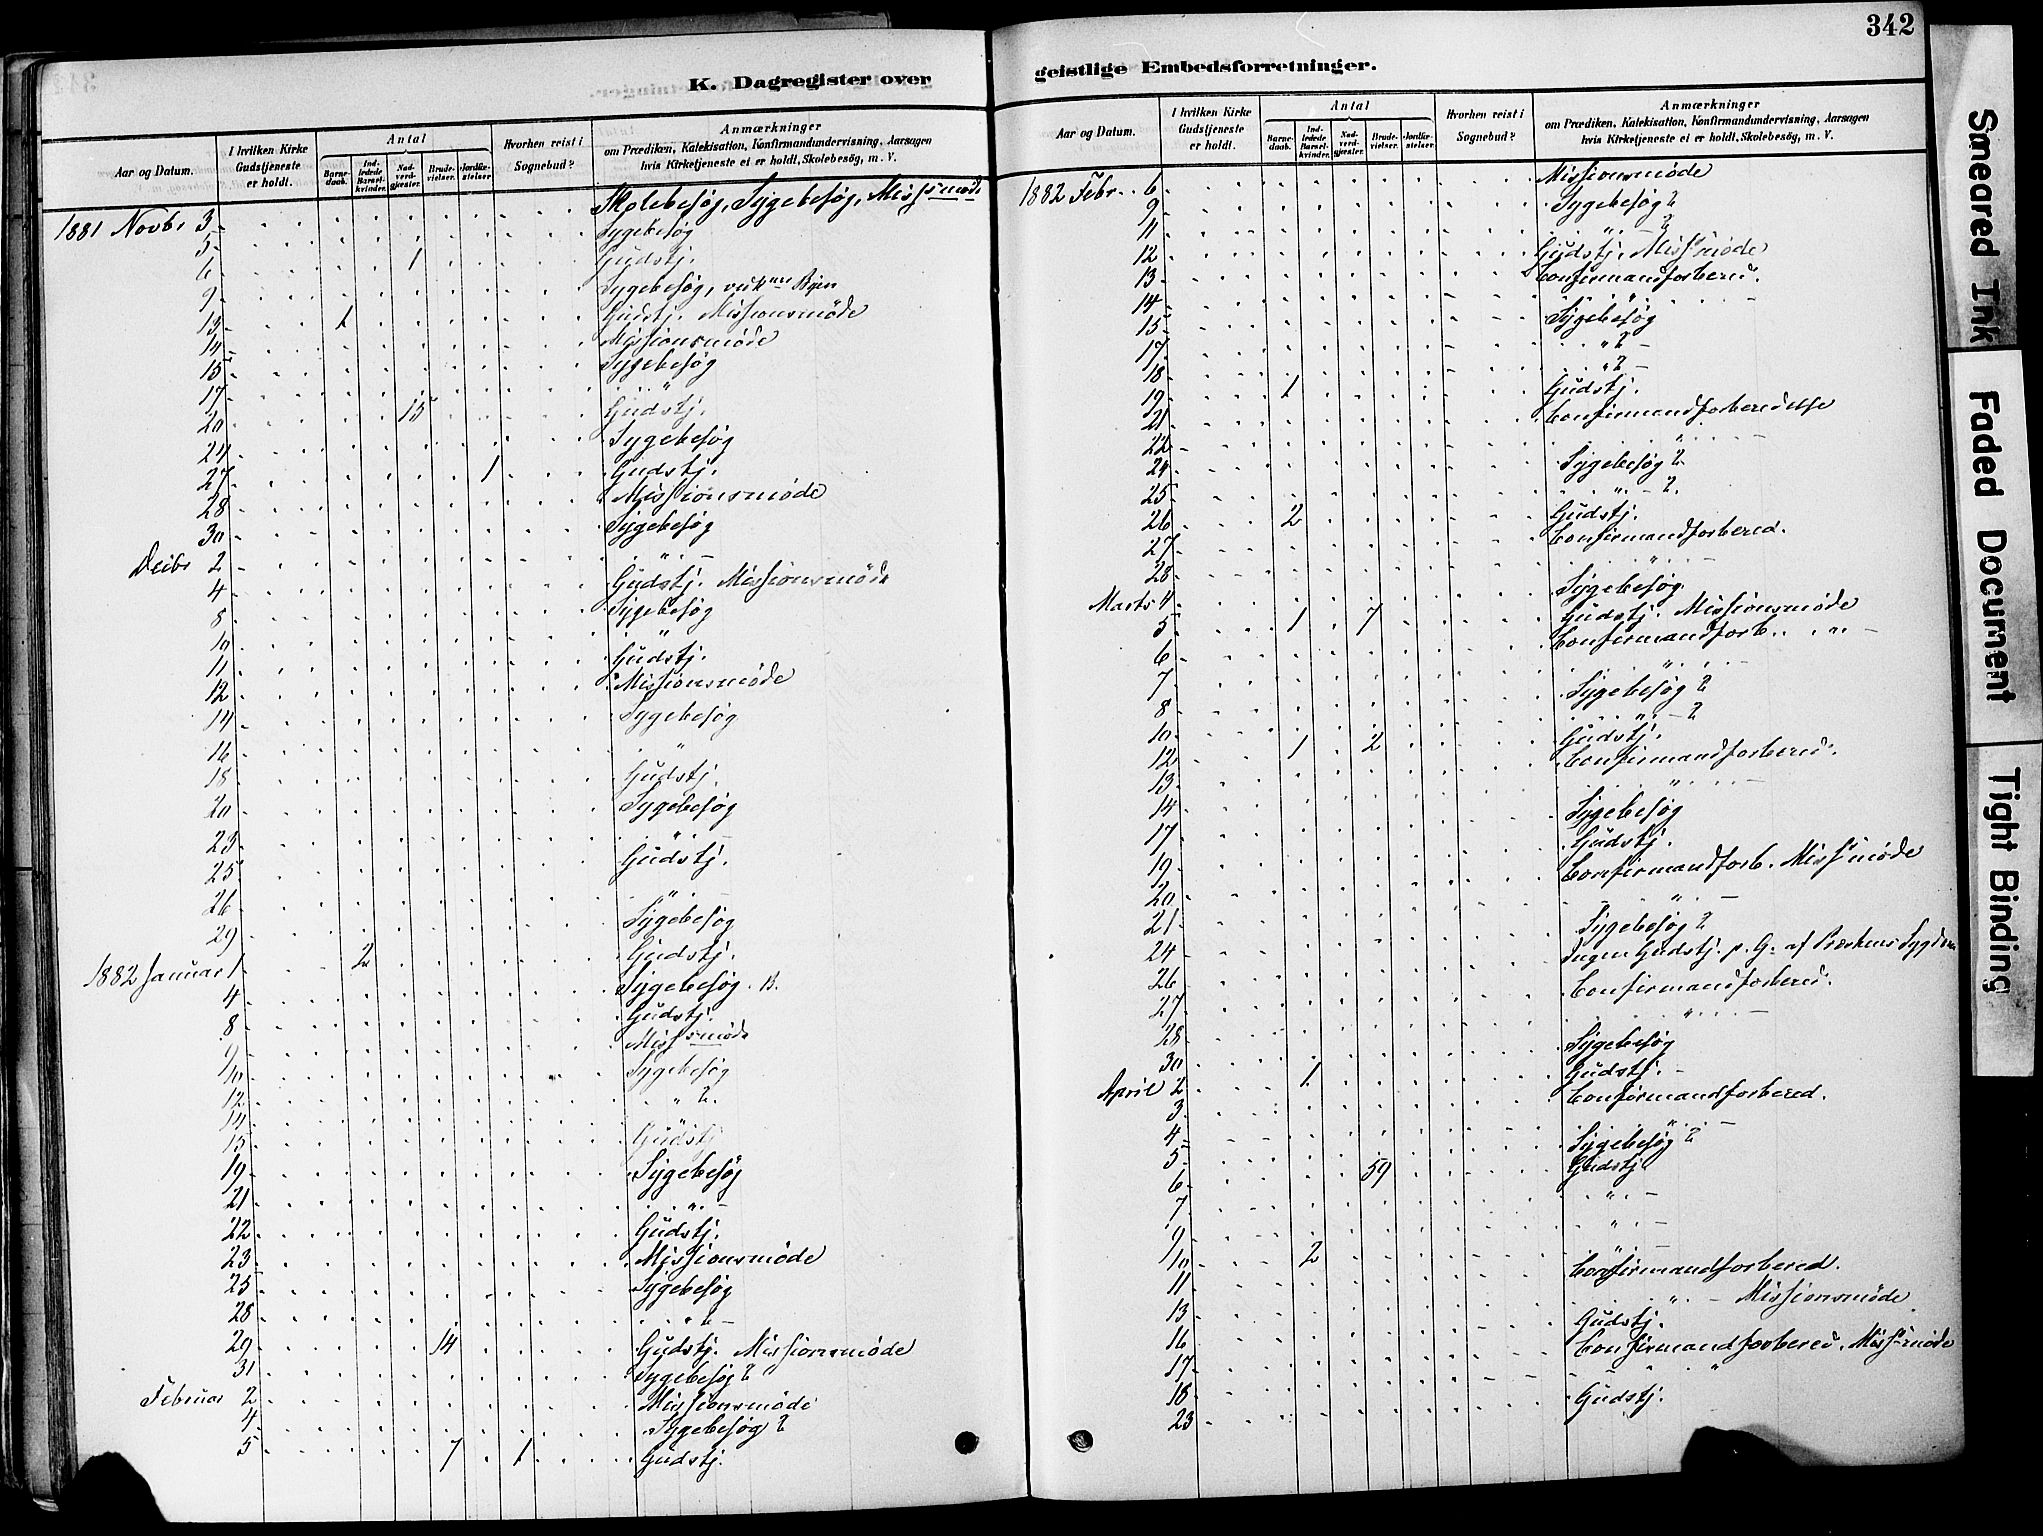 K. Dagregister over
Aar og Datum.
I hvilken Kirke Gudstjeneste er holdt.
Antal
Barnedaab.
Indledede Barselkvinder.
Nadverdgjester.
Brudevielser.
Jordfæstelser.
Hvorhen reist i Sognebud?
Anmærkninger
om Prædiken, Katekisation, Konfirmandundervisning, Aarsagen
hvis Kirketjeneste ei er holdt, Skolebesög, m. V.
1881 Novbr 3 Skolebesøg, Sygebesøg, Missmøde
5 Sygebesøg
6 1 Gudstj.
9 Sygebesøg,
13 1 Gudstj. Missionsmøde
14 Missionsmøde
15 Sygebesøg
17 "
20 15 Gudstj.
24 Sygebesøg
27 1 Gudstj.
28 Missionsmøde
30 Sygebesøg
Decbr 2 " -
4 Gudstj. Missionsmøde
8 Sygebesøg
10 "
11 Gudstj.
12 Missionsmøde
14 Sygebesøg
16 "
18 Gudstj.
20 Sygebesøg
23 " -
25 Gudstj.
26 "
29 Sygebesøg
1882 Januar 1 2 Gudstj.
4 Sygebesøg. B.
8 Gudstj.
9 Missmøde
10 Sygebesøg
12 " 2.
14
15 Gudstj
19 Sygebesøg
21 " -
22 Gudstj.
23 Missionsmøde
25 Sygebesøg
28 " -
29 14 Gudstj. Missionsmøde
31 Sygebesøg 2
Februar 2 Missionsmøde
4 Sygebesøg 2
5 7 1 Gudstj.
342
geistlige Embedsforretninger.
Aar og Datum.
I hvilken Kirke Gudstjeneste er holdt.
Antal
Barnedaab.
Indledede Barselkvinder.
Nadverdgjester.
Brudevielser.
Jordfæstelser.
Hvorhen reist i Sognebud?
Anmærkninger
om Prædiken, Katekisation, Konfirmandundervisning, Aarsagen
hvis Kirketjeneste ei er holdt, Skolebesög, m. V.
1882 Febr. 6 Missionsmøde
9 Sygebesøg 2
11 " - 2
12 Gudstj. Missmøde
13 Confirmandforbered.
14 "
15 Sygebesøg
17 " 2 -
18 " 2 -
19 1 Gudstj.
21 Confirmandforberedelse
22 " -
24 Sygebesøg 2
25 " - 2.
26 2 Gudstj.
27 Confirmandforbered.
28 " -
Marts 4 Sygebesøg
5 1 7 Gudstj. Missionsmøde
6 Confirmandforb. " -
7 " -
8 Sygebesøg 2
10 " - 2
12 1 2 Gudstj.
13 Confirmandforbered.
14 " -
17 Sygebesøg
19 Gudstj.
20 Confirmandforb. Missmøde
21 " -
24 Sygebesøg 2
26 Ingen Gudstj. p. G. af Præstens Sygdom
27 Confirmandforbered.
28 " -
30 Sygebesøg
April 2 1 Gudstj. -
3 Confirmandforbered.
4 " -
5 Sygebesøg 2
6 59 Gudstj
7 " -
9 " -
10 2 " -
11 Confirmandforbered.
13 " - Missionsmøde
16 Gudstj.
17 Confirmandforbered. Missmøde
18 "
23 Gudstj.
Smeared Ink
Faded Document
Tight Binding